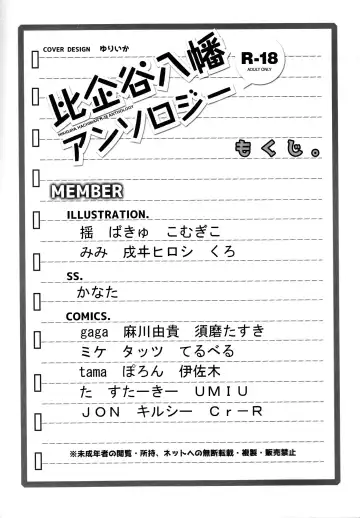 COVER DESIGN ゆりいか
R-18
ADULT ONLY
比企谷八幡
HIKIGAYA HACHIMAN R-18 ANTHOLOGY
アンソロジー
もくじ。
MEMBER
ILLUSTRATION.
揺 ばきゅ こむぎこ
みみ 戌ヰヒロシ くろ
SS.
かなた
COMICS.
gaga 麻川由貴 須磨たすき
ミケ タッツ てるべる
tama ぽろん 伊佐木
た すたーきー UMIU
JON キルシー Cr-R
※未成年者の閲覧・所持、ネットへの無断転載・複製・販売禁止